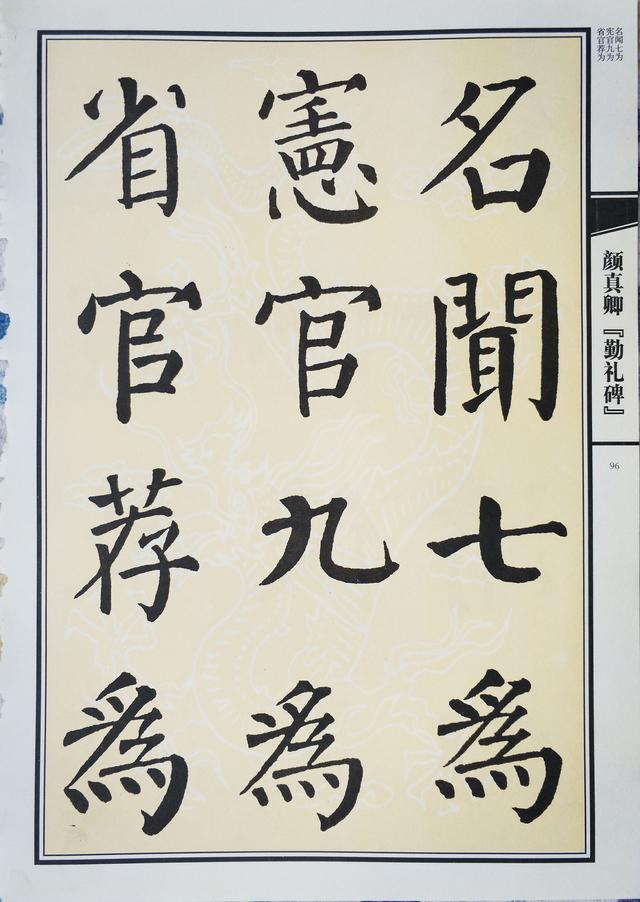 名聞七爲
憲官九爲
省官荐爲
名闻七为
宪官九为
省官荐为
颜真卿『勤礼碑』
96